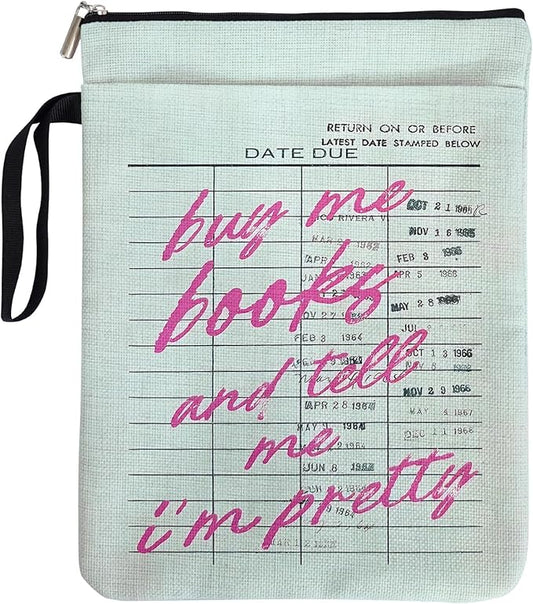 RETURN ON OR BEFORE
LATEST DATE STAMPED BELOW
DATE DUE
buy me
books
and tell
me
i'm pretty
OCT 2 1 1965
NOV 1 6 1965
FEB 3 1966
APR 5 1966
MAY 2 8 1966
JUL
OCT 1 3 1966
NOV 2 9 1966
MAY 1967
DEC 1 1 1966
RIVERA
1962
APR 1962
JAN
NOV 2 7
FEB 3 1964
APR 2 8 1964
MAY 1964
JUN 8 1964
1964